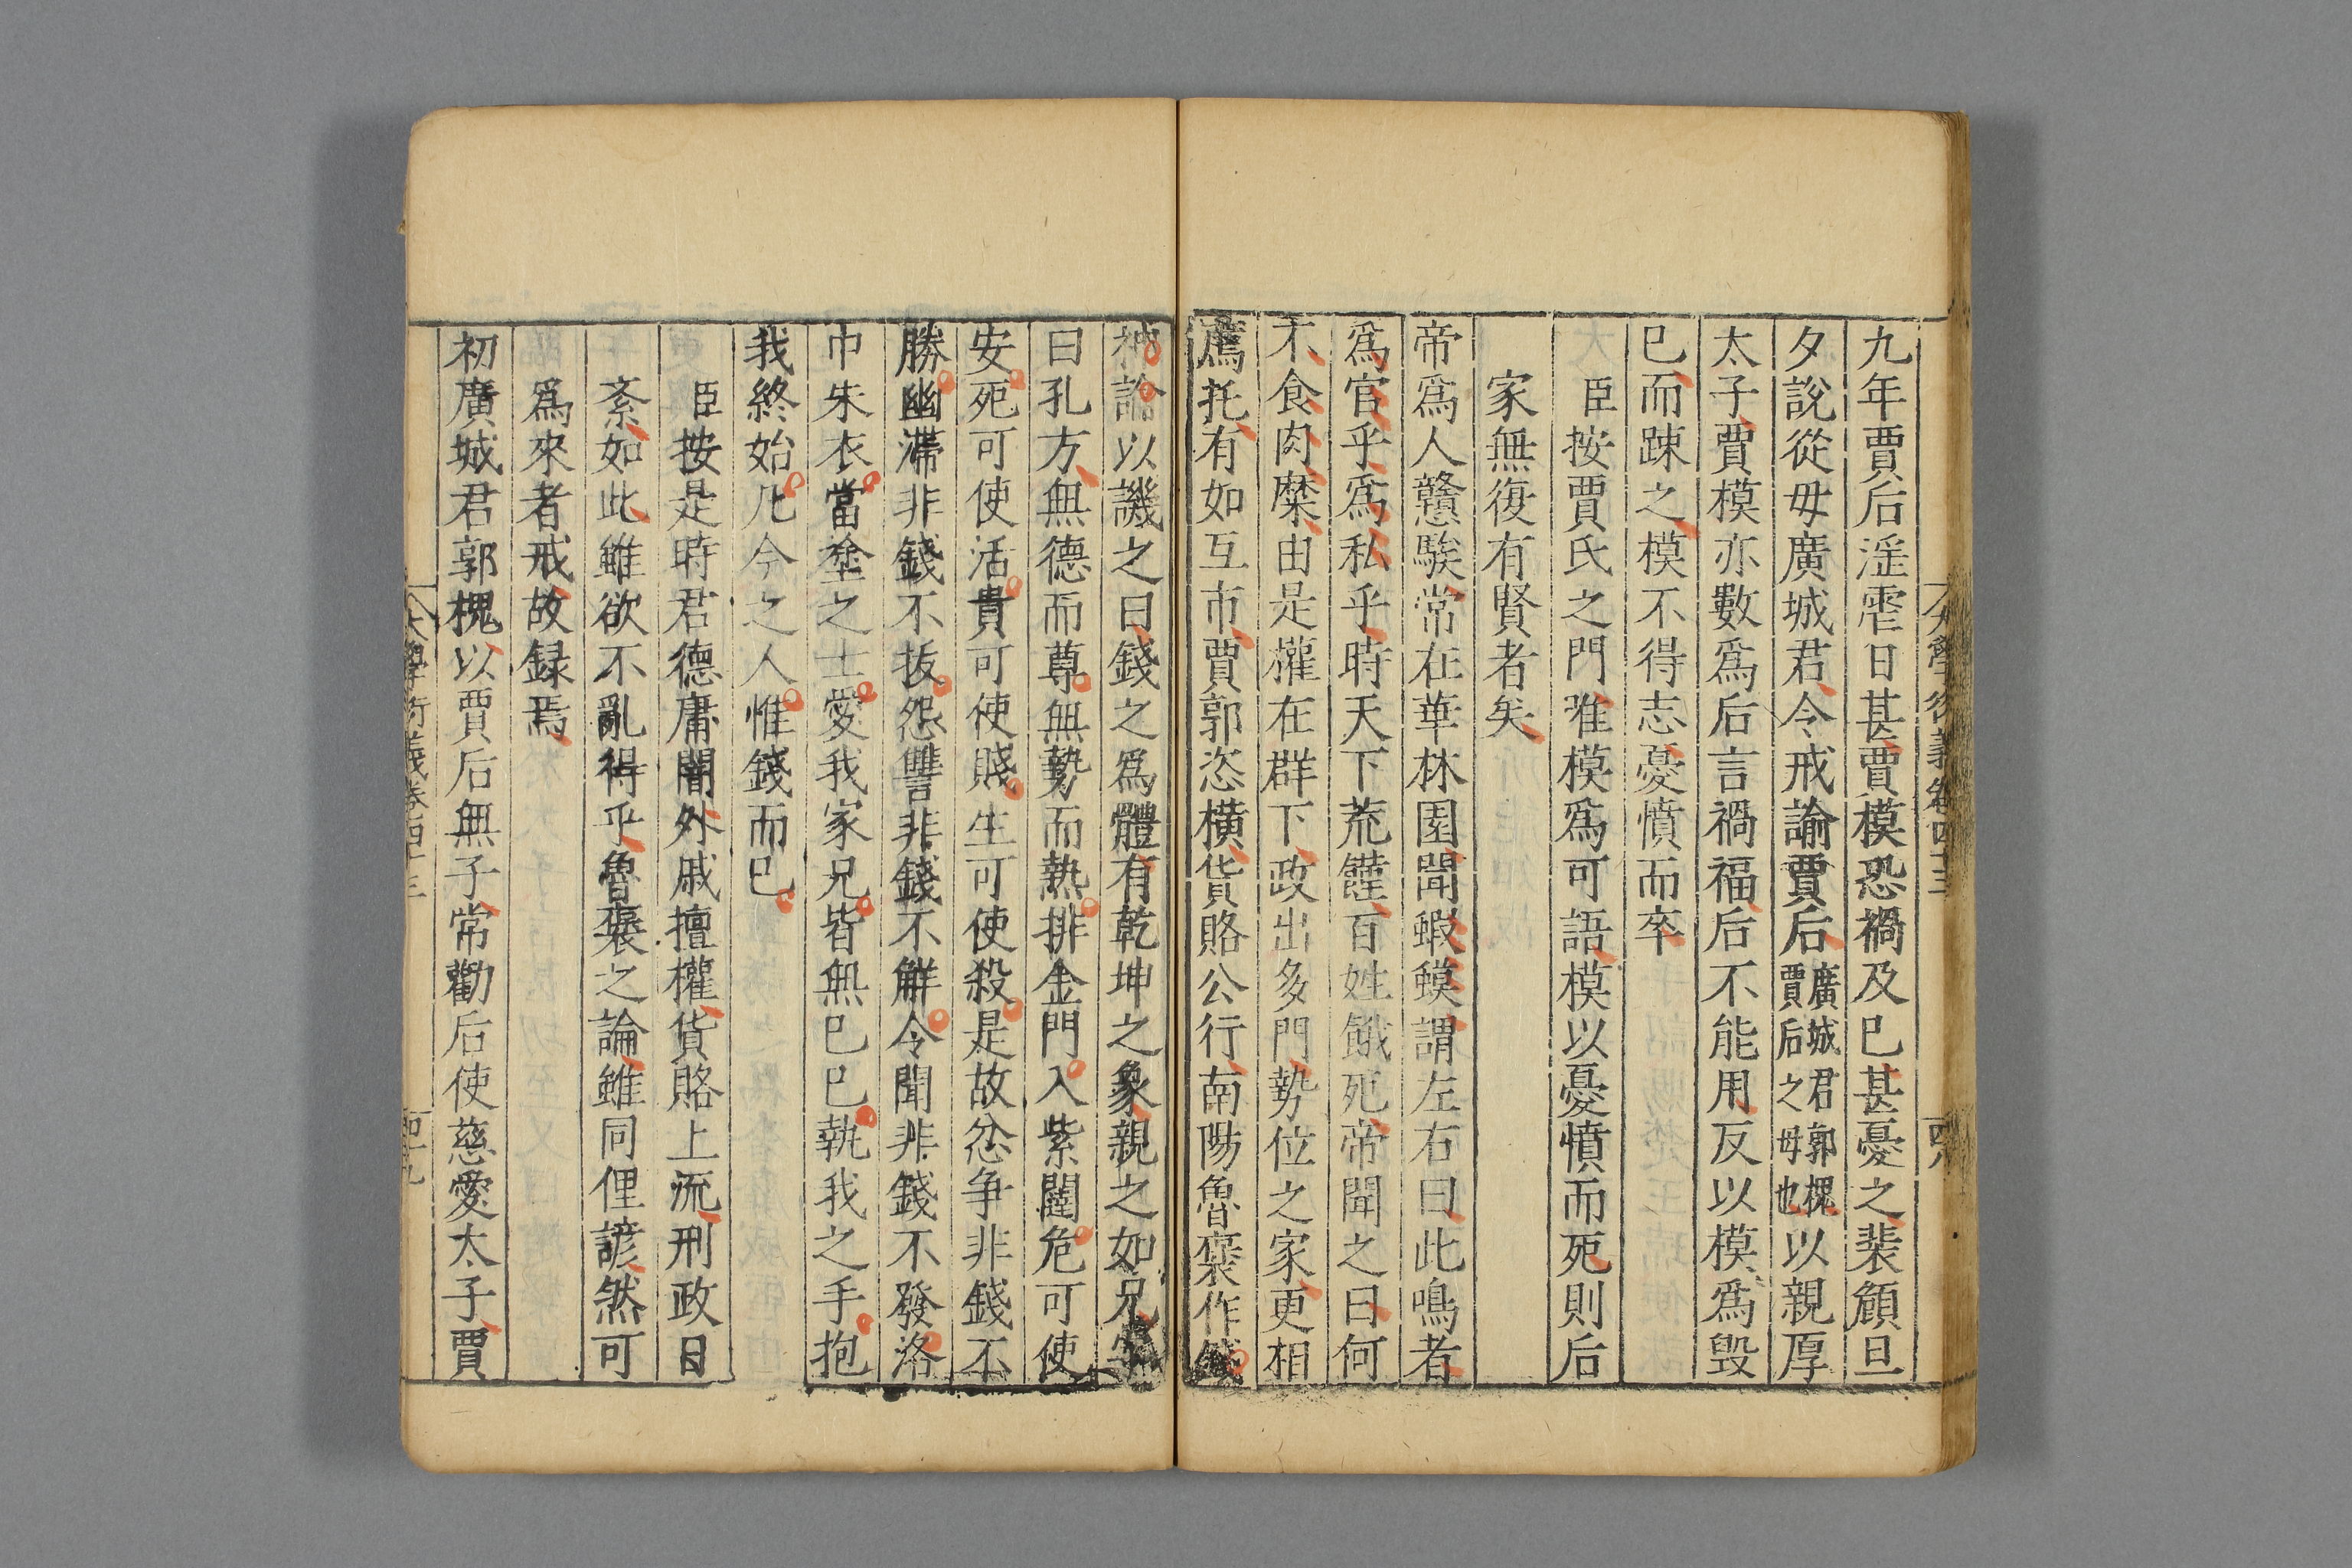 大學衍義卷四十三
四八
九年賈后淫虐日甚賈模恐禍及已甚憂之裴頠旦
夕說從母廣城君令戒諭賈后廣城君郭槐賈后之母也以親厚
太子賈模亦數爲后言禍福后不能用反以模爲毁
已而踈之模不得志憂憤而卒
臣按賈氏之門唯模爲可語模以憂憤而死則后
家無復有賢者矣
帝爲人戇騃常在華林園聞蝦蟆謂左右曰此鳴者
爲官乎爲私乎時天下荒饉百姓餓死帝聞之曰何
不食肉糜由是權在群下政出多門勢位之家更相
薦托有如互市賈郭恣橫貨賂公行南陽魯褒作錢
神論以譏之曰錢之爲體有乾坤之象親之如兄字
曰孔方無德而尊無勢而熱排金門入紫闥危可使
安死可使活貴可使賤生可使殺是故忿爭非錢不
勝幽滯非錢不拔怨讐非錢不解令聞非錢不發洛
中朱衣當塗之士愛我家兄皆無已已執我之手抱
我終始凡今之人惟錢而已
臣按是時君德庸闇外戚擅權貨賂上流刑政日
紊如此雖欲不亂得乎魯褒之論雖同俚諺然可
爲來者戒故録焉
初廣城君郭槐以賈后無子常勸后使慈愛太子賈
大學衍義卷四十三
四十九